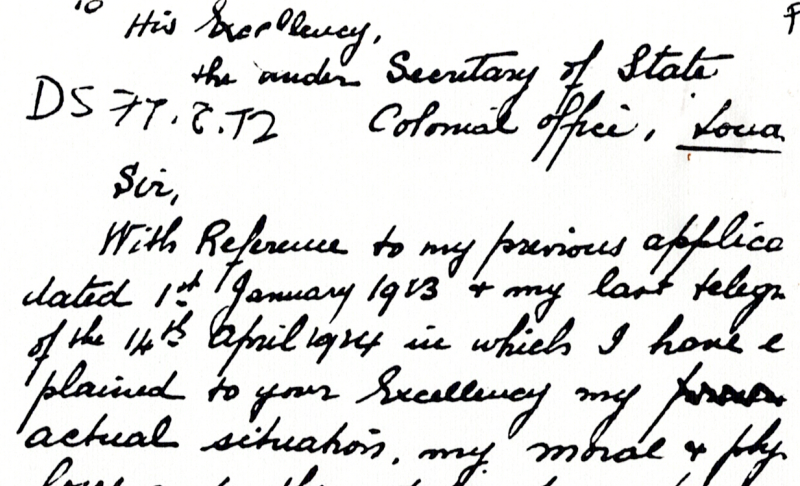 To
His Excellency,
the under Secretary of State
Colonial office,
Sir,
With Reference to my previous applica
dated 1st January 1913 & my last telegr
of the 14th April 1914 in which I have e
plained to your Excellency my
actual situation, my moral & phy